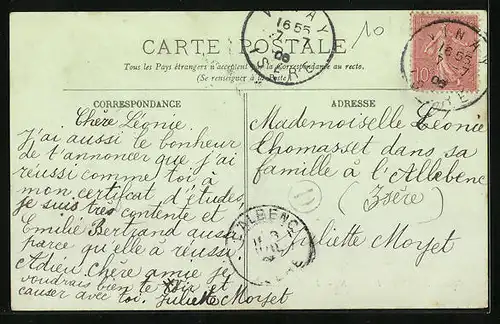 10
VINAY
16 55
7 -7
06
ISERE
VINAY
16 55
7 -7
06
ISERE
10
CARTE POSTALE
Tous les Pays étrangers n'acceptent pas la Correspondance au recto.
(Se renseigner à la Poste)
CORRESPONDANCE
Chère Léonie.
J'ai aussi le bonheur
de t'annoncer que j'ai
réussi comme toi à
mon certificat d'études
je suis très contente et
Emilie Bertrand aussi
parce qu'elle à réussi.
Adieu chère amie je
voudrais bien te voir et
causer avec toi. Juliette Moyet
ADRESSE
Mademoiselle Léonie
Thomasset dans sa
famille à l'Allebenc
(Isère)
D
L'ALBENC
ISERE
Juliette Moyet